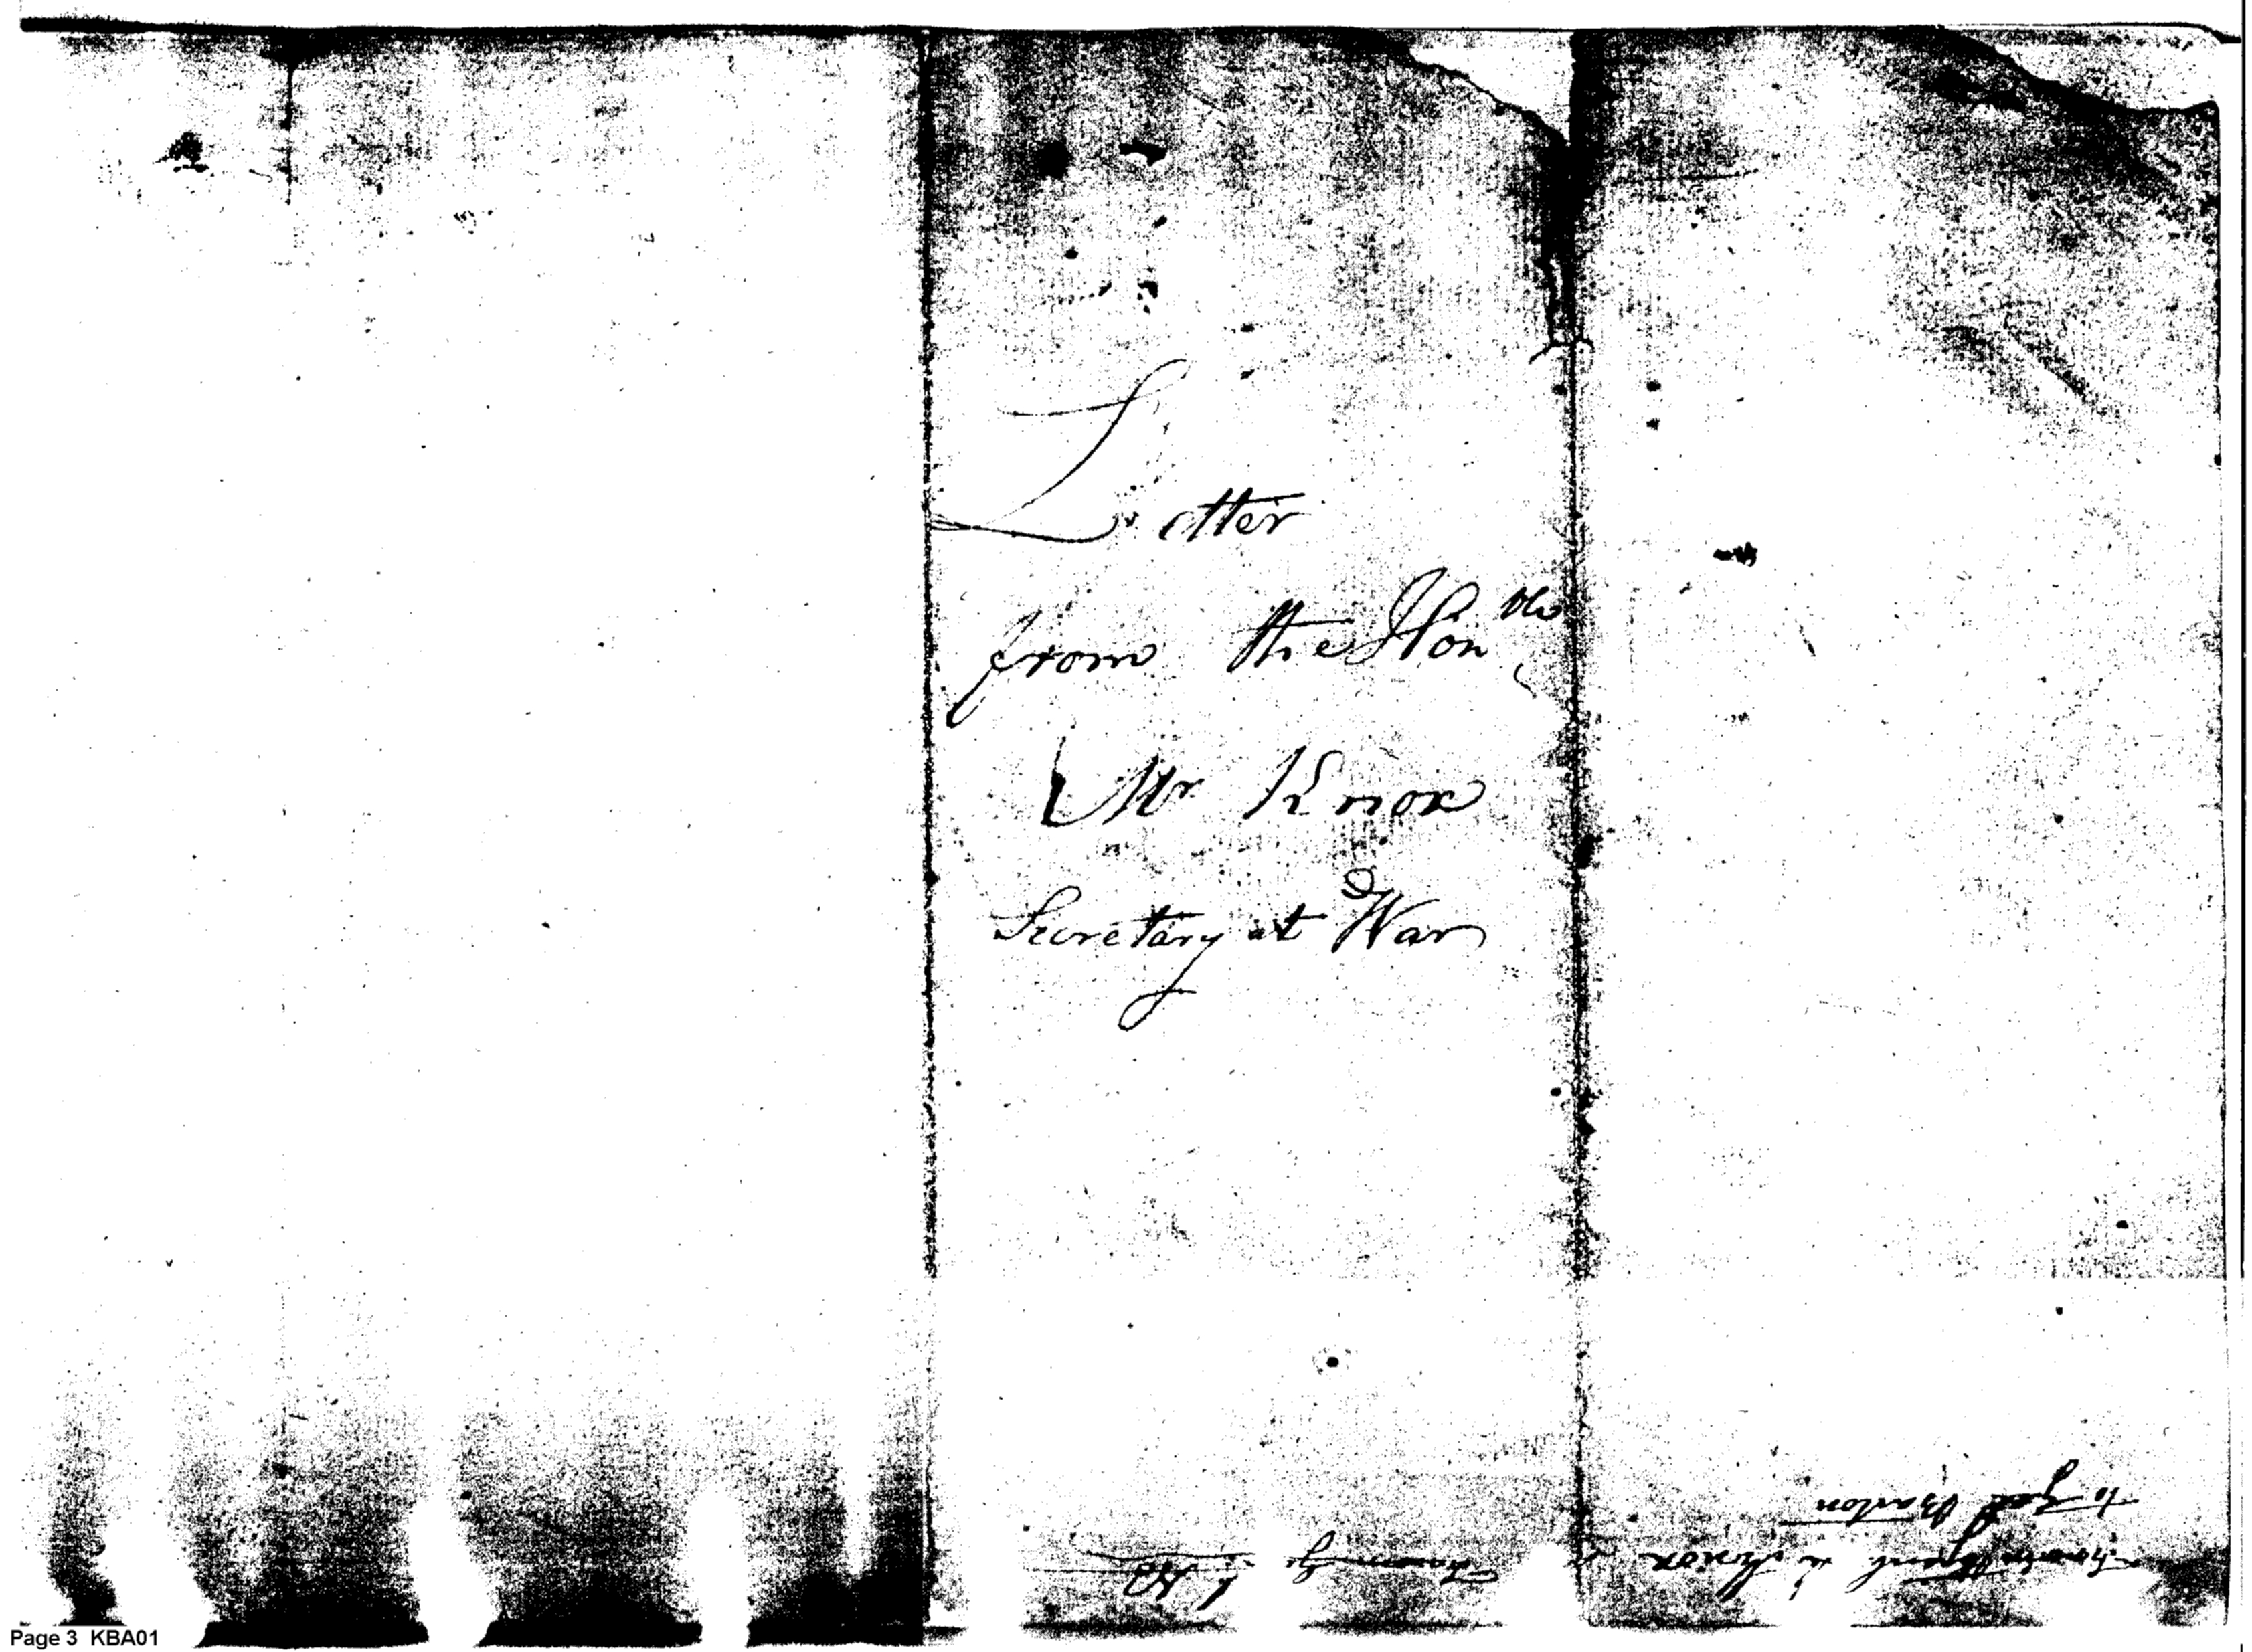 Letter
from the Honble
Mr Knox
Secretary at War
to Barton
Knox
Page 3 KBA01